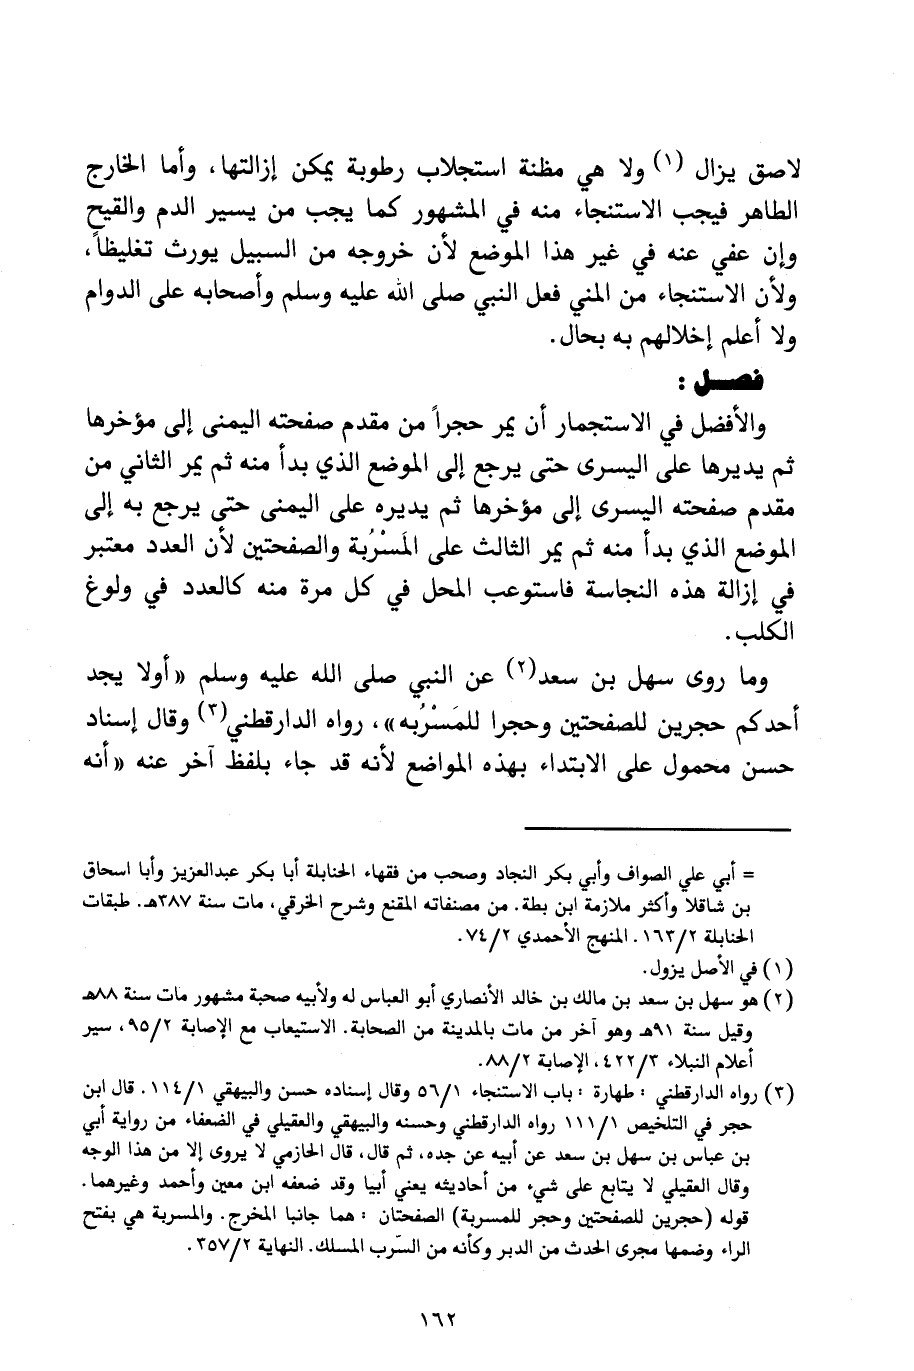 لاصق يزال (١) ولا هي مظنة استجلاب رطوبة يمكن إزالتها، وأما الخارج
الطاهر فيجب الاستنجاء منه في المشهور كما يجب من يسير الدم والقيح
وإن عفي عنه في غير هذا الموضع لأن خروجه من السبيل يورث تغليظاً،
ولأن الاستنجاء من المني فعل النبي صلى الله عليه وسلم وأصحابه على الدوام
ولا أعلم إخلالهم به بحال.
فصـل :
والأفضل في الاستجمار أن يمر حجراً من مقدم صفحته اليمنى إلى مؤخرها
ثم يديرها على اليسرى حتى يرجع إلى الموضع الذي بدأ منه ثم يمر الثاني من
مقدم صفحته اليسرى إلى مؤخرها ثم يديره على اليمنى حتى يرجع به إلى
الموضع الذي بدأ منه ثم يمر الثالث على المَسْرُبة والصفحتين لأن العدد معتبر
في إزالة هذه النجاسة فاستوعب المحل في كل مرة منه كالعدد في ولوغ
الكلب.
وما روى سهل بن سعد(٢) عن النبي صلى الله عليه وسلم «أولا يجد
أحدكم حجرين للصفحتين وحجرا للمَسْرُبه»، رواه الدارقطني(٣) وقال إسناد
حسن محمول على الابتداء بهذه المواضع لأنه قد جاء بلفظ آخر عنه «أنه
= أبي علي الصواف وأبي بكر النجاد وصحب من فقهاء الحنابلة أبا بكر عبدالعزيز وأبا اسحاق
بن شاقلا وأكثر ملازمة ابن بطة. من مصنفاته المقنع وشرح الخرقي، مات سنة ٣٨٧هـ. طبقات
الحنابلة ١٦٣/٢. المنهج الأحمدي ٧٤/٢.
(١) في الأصل يزول.
(٢) هو سهل بن سعد بن مالك بن خالد الأنصاري أبو العباس له ولأبيه صحبة مشهور مات سنة ٨٨هـ
وقيل سنة ٩١هـ وهو آخر من مات بالمدينة من الصحابة. الاستيعاب مع الإصابة ٩٥/٢، سير
أعلام النبلاء ٤٢٢/٣، الإصابة ٨٨/٢.
(٣) رواه الدارقطني : طهارة : باب الاستنجاء ٥٦/١ وقال إسناده حسن والبيهقي ١١٤/١. قال ابن
حجر في التلخيص ١١١/١ رواه الدارقطني وحسنه والبيهقي والعقيلي في الضعفاء من رواية أبي
بن عباس بن سهل بن سعد عن أبيه عن جده، ثم قال، قال الحازمي لا يروى إلا من هذا الوجه
وقال العقيلي لا يتابع على شيء من أحاديثه يعني أبيا وقد ضعفه ابن معين وأحمد وغيرهما.
قوله (حجرين للصفحتين وحجر للمسربة) الصفحتان : هما جانبا المخرج. والمسربة هي بفتح
الراء وضمها مجرى الحدث من الدبر وكأنه من السّرب المسلك. النهاية ٣٥٧/٢.
١٦٢